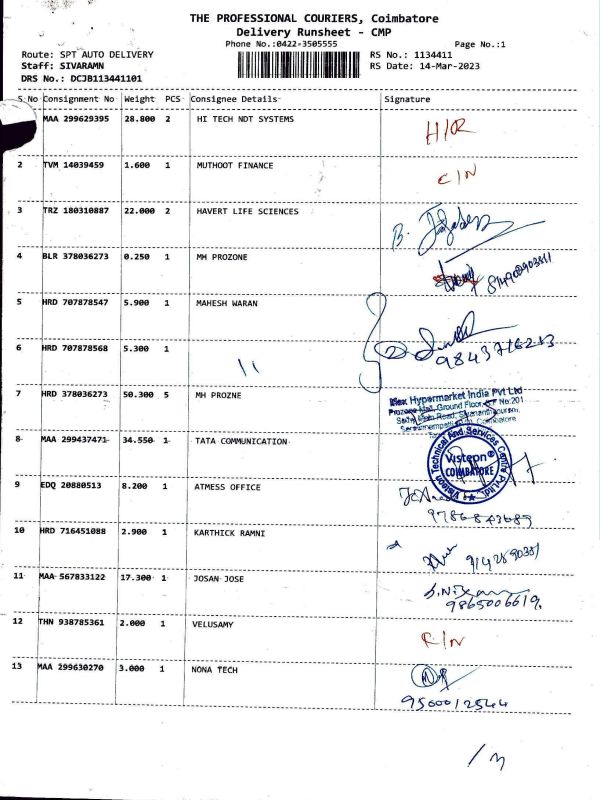 THE PROFESSIONAL COURIERS, Coimbatore
Delivery Runsheet - CMP
Phone No.:0422-3505555 Page No.:1
Route: SPT AUTO DELIVERY RS No.: 1134411
Staff: SIVARAMN RS Date: 14-Mar-2023
DRS No.: DCJB113441101
S No Consignment No Weight PCS Consignee Details Signature
MAA 299629395 28.800 2 HI TECH NDT SYSTEMS
2 TVM 14039459 1.600 1 MUTHOOT FINANCE
3 TRZ 180310887 22.000 2 HAVERT LIFE SCIENCES
4 BLR 378036273 0.250 1 MH PROZONE
5 HRD 707878547 5.900 1 MAHESH WARAN
6 HRD 707878568 5.300 1 11
7 HRD 378036273 50.300 5 MH PROZNE
Hypermarket India Pvt Ltd
Prozone Mall, Ground Floor, No:201
8 MAA 299437471 34.550 1 TATA COMMUNICATION
Visteon®
COIMBATORE
9 EDQ 20880513 8.200 1 ATMESS OFFICE
10 HRD 716451088 2.900 1 KARTHICK RAMNI
11 MAA 567833122 17.300 1 JOSAN JOSE
9865006619
12 THN 938785361 2.000 1 VELUSAMY
13 MAA 299630270 3.000 1 NONA TECH
9500012544